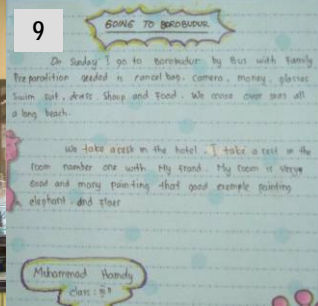 9
GOING TO BOROBUDUR
On Sunday I go to Borobudur by Bus with Family
Preparation needed is bag, camera, money, glasses
Swim sut, dress, Shoop and Food. We over was all
a long beach.
We take a rest in the hotel. I take a rest in the
room number one with My frand. My room is verye
Good and many painting that good exemple painting
elephant and
Muhammad Hamdy
clas :